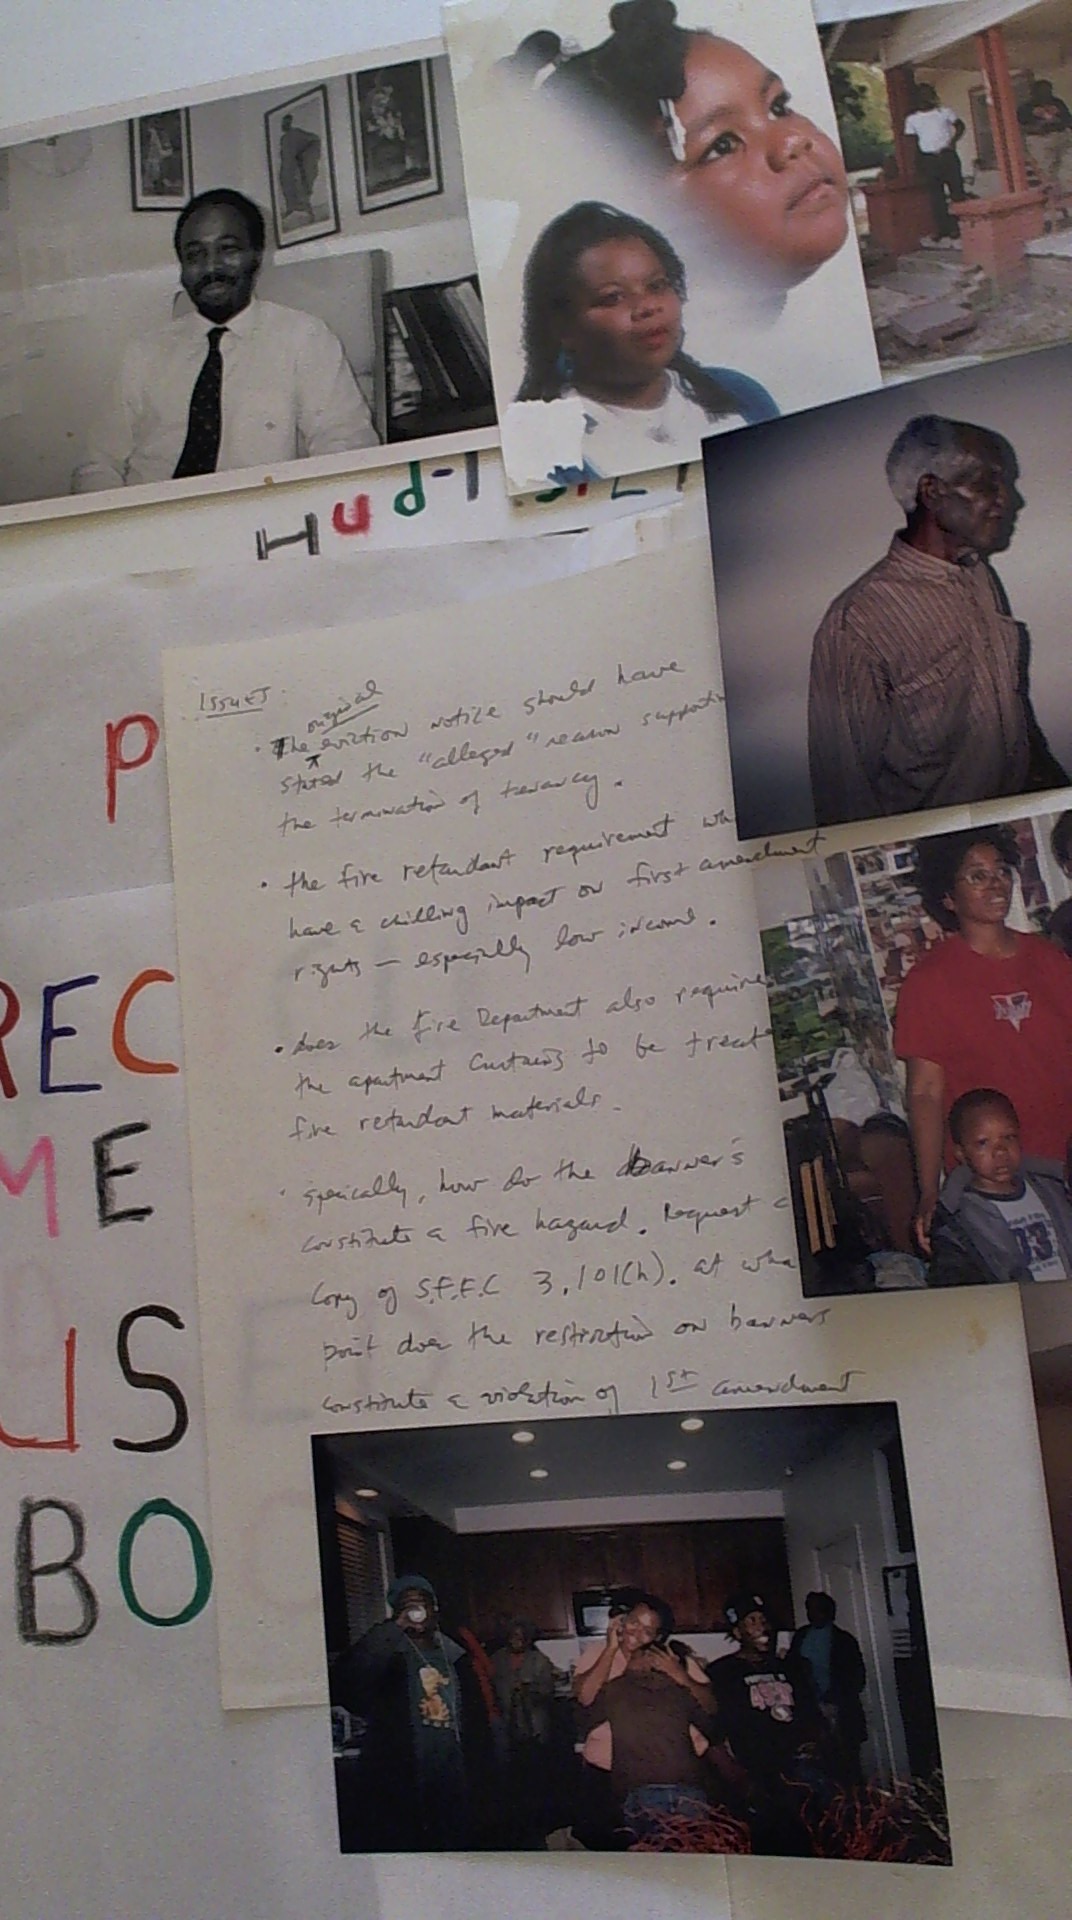 Hud-1
P
REC
ME
US
BO
ISSUES:
original
• The eviction notice should have
stated the "alleged" reason supportin
the termination of tenancy.
• the fire retardant requirement wh
have a chilling impact on first amendment
rights — especially low income.
• does the Fire Department also require
the apartment curtains to be treat
fire retardant materials.
• specically, how do the banner's
constitute a fire hazard. Request a
copy of S.F.F.C 3.101(h). at wha
point does the restriction on banners
constitute a violation of 1st amendment